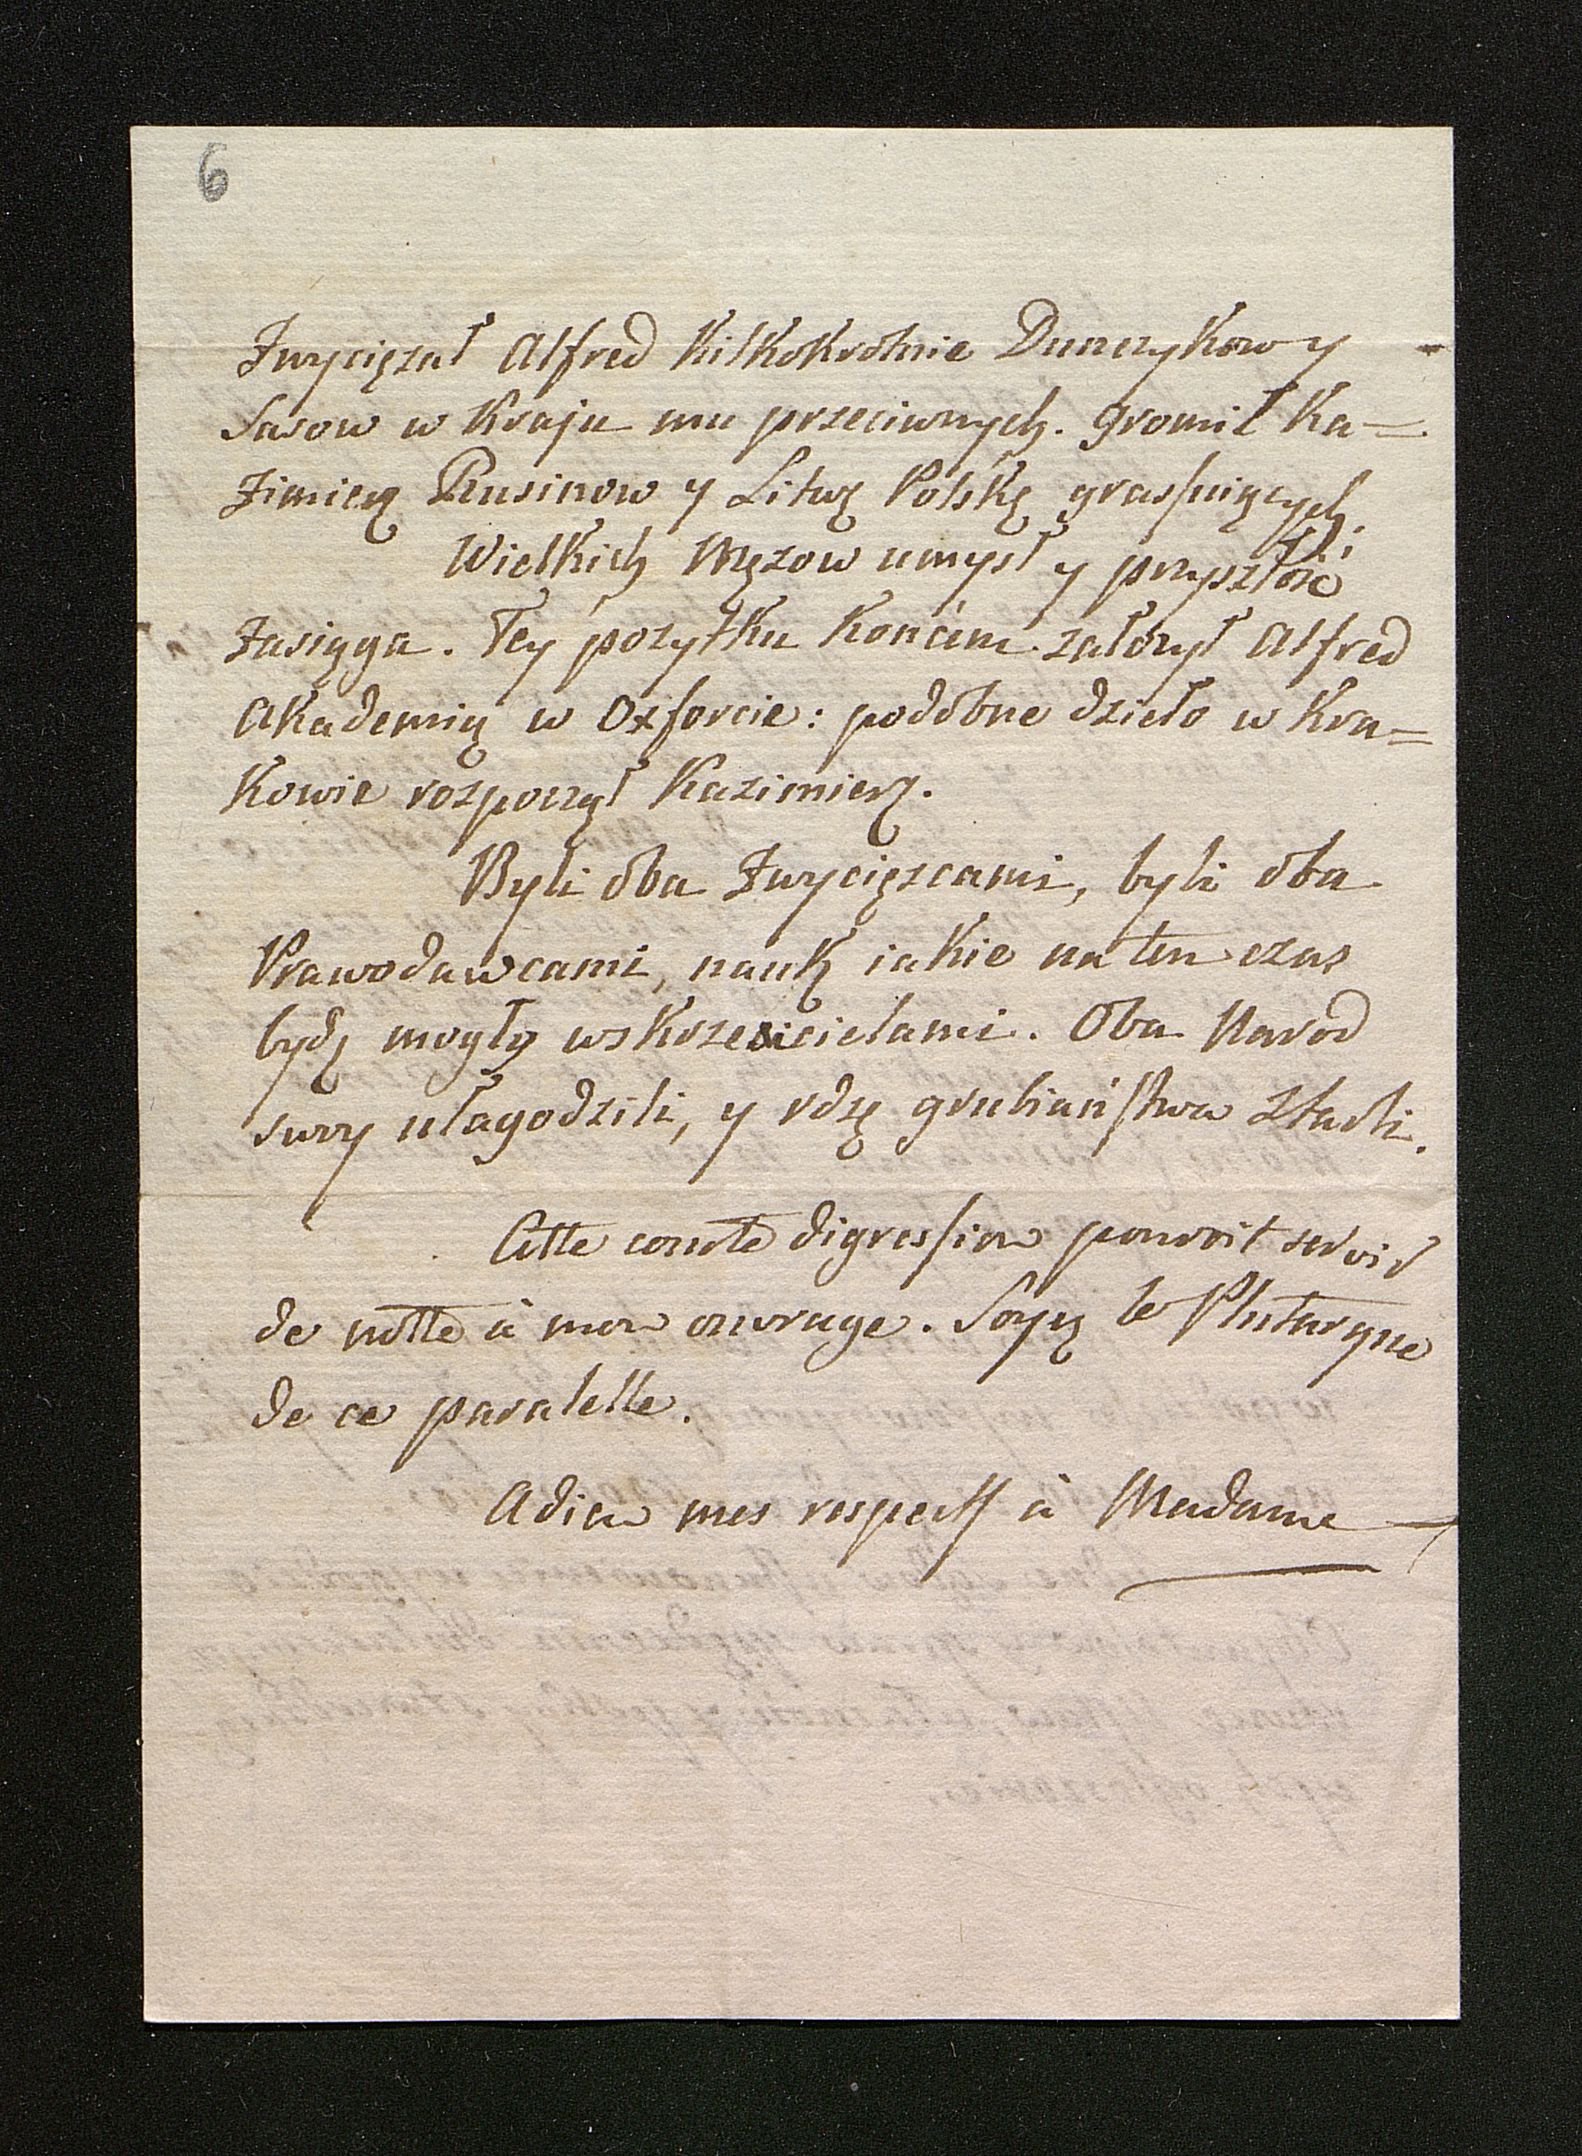 6
Zwyciężał Alfred kilkokrotnie Dunczykow y
Sasow w kraju mu przeciwnych. gromił Ka=
zimierz Rusinow y Litwę Polskę grassuiących.
Wielkich Mężow umysł y przyszłość
zasięga. Tey pożytku końcem założył Alfred
Akademią w Oxforcie: podobne dzieło w Kra=
kowie rospoczął Kazimierz.
Byli oba Zwyciężcami, byli oba
Prawodawcami, nauk iakie na ten czas
bydz mogły wskrzesicielami. Oba Narod
surowy ułagodzili, y rdzę grubiaństwa starli.
Cette courte digression pouroit servir
de notte à mon ouvrage. Soyez le Plutarque
de ce paralelle.
Adieu mes respects à Madame